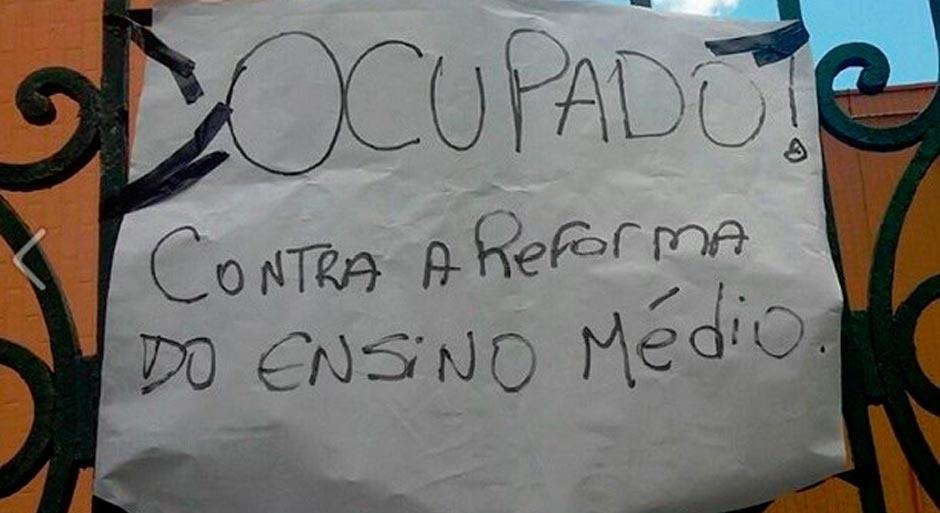 OCUPADO!
CONTRA A Reforma
DO ENSiNO Médio.